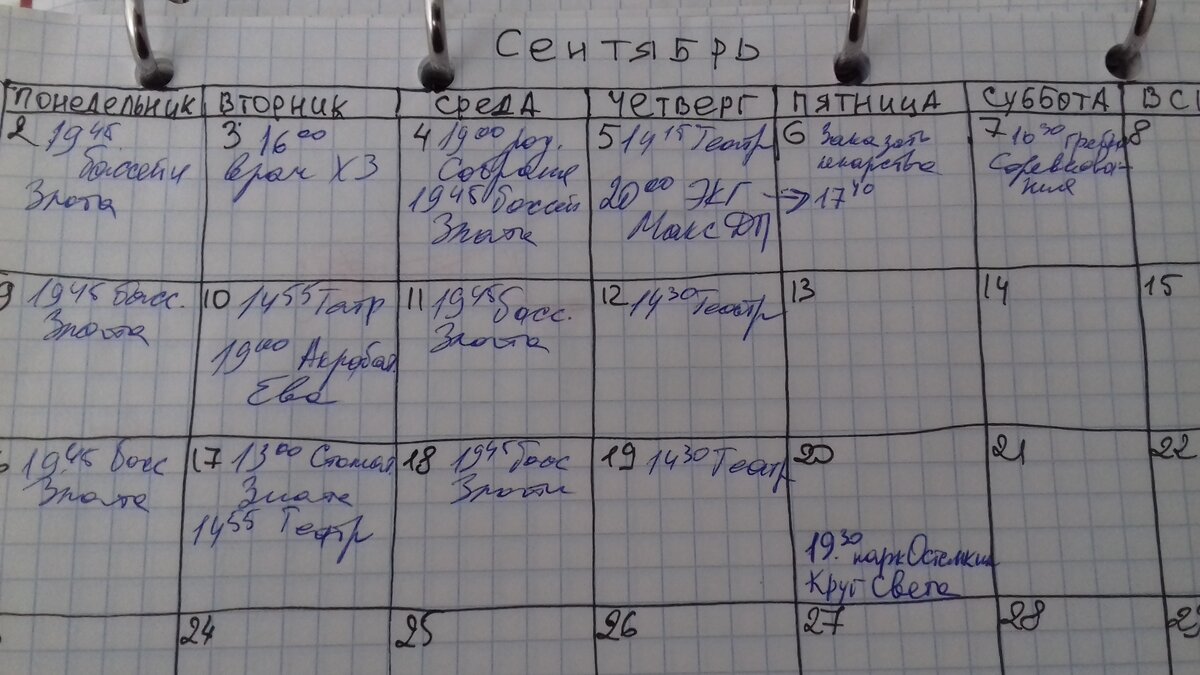 Сентябрь
Понедельник Вторник Среда Четверг Пятница Суббота ВС
2 19 45
бассейн
Злата
3 16 00
врач х3
4 19 00 род.
Собрание
19 45 Бассейн
Злата
5 14 15 Театр
20 00 ЭКГ →
Макс ДП
6 Заказать
лекарства
→ 17 40
7 10 30 гребля
Соревнова-
ния
8
9 19 45 басс.
Злата
10 14 55 Татр
19 00 Акробат.
Ева
11 19 45 басс.
Злата
12 14 30 Театр
13
14
15
19 45 басс
Злата
17 13 00 Стомат.
Злата
14 55 Театр
18 19 45 басс
Злата
19 14 30 Театр
20
19.30 парк Останкин
Круг Света
21
22
24
25
26
27
28